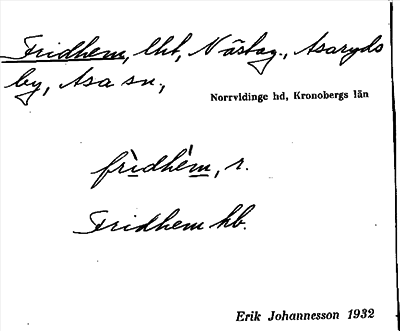 Fridhem, lht, N ästag., Asaryds
by, Asa sn,
Norrvidinge hd, Kronobergs län
frìdhèm, r.
Fridhem hb.
Erik Johannesson 1932